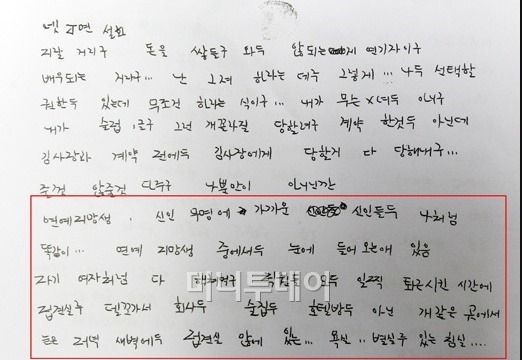 지랄 거리구 돈을 쌓들구 와두 않되는 연기자이구
배우되는 거라구... 난 그저 하라는 데루 그렇게... 나두 선택할
권한두 있는데 무조건 하라는 식이구... 내가 무는 X녀두 아니구
내가 술럽 구 그런 개꼬라질 당할려구 계약 한것두 아닌데
김사장과 계약 전에두 김사장에게 당할거 다 당해내구...
줄것 않줄것 다주구 나뿐만이 아니닌깐
연예지망생. 신인 무명에 가까운 신인들두 나처럼
똑같이... 연예 지망생 중에서두 눈에 들어 오는애 있음
자기 여자처럼 다 직원두 모두 일찍 퇴근시킨 시간에
접견실루 델꼬가서 회사두 술집두 호텔방두 아닌 개같은 곳에서
저녁 새벽에두 접견실 안에 있는... 욕실.. 별실루 있는 침실....
머니투데이